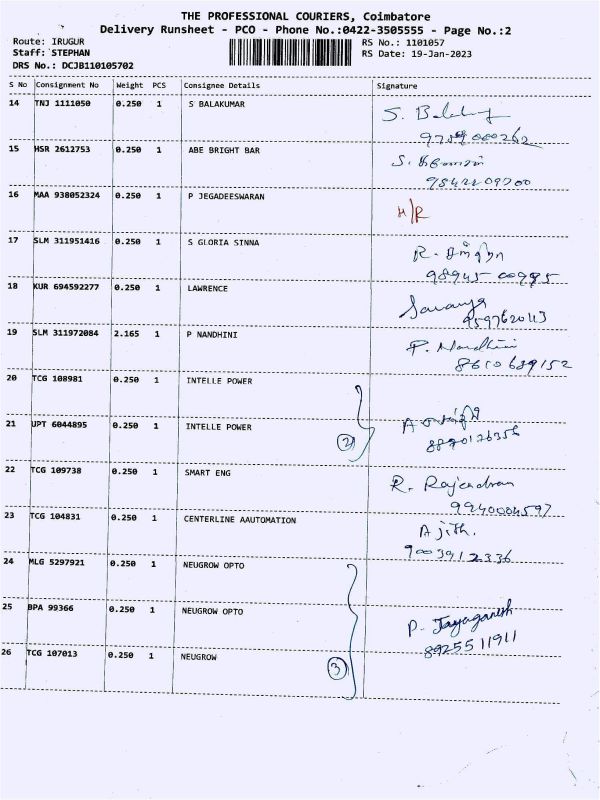 THE PROFESSIONAL COURIERS, Coimbatore
Delivery Runsheet - PCO - Phone No.:0422-3505555 - Page No.:2
Route: IRUGUR
RS No.: 1101057
Staff: STEPHAN
RS Date: 19-Jan-2023
DRS No.: DCJB110105702
S No Consignment No Weight PCS Consignee Details Signature
14 TNJ 1111050 0.250 1 S BALAKUMAR
15 HSR 2612753 0.250 1 ABE BRIGHT BAR
16 MAA 938052324 0.250 1 P JEGADEESWARAN H/R
17 SLM 311951416 0.250 1 S GLORIA SINNA
18 KUR 694592277 0.250 1 LAWRENCE Saranya
9597620113
19 SLM 311972084 2.165 1 P NANDHINI P. Nandhini
8610689152
20 TCG 108981 0.250 1 INTELLE POWER
21 UPT 6044895 0.250 1 INTELLE POWER
2
8870126356
22 TCG 109738 0.250 1 SMART ENG R. Rajendran
9940004597
23 TCG 104831 0.250 1 CENTERLINE AAUTOMATION Ajith.
9003912336
24 MLG 5297921 0.250 1 NEUGROW OPTO
25 BPA 99366 0.250 1 NEUGROW OPTO P. Jayaganesh
8925511911
26 TCG 107013 0.250 1 NEUGROW
3